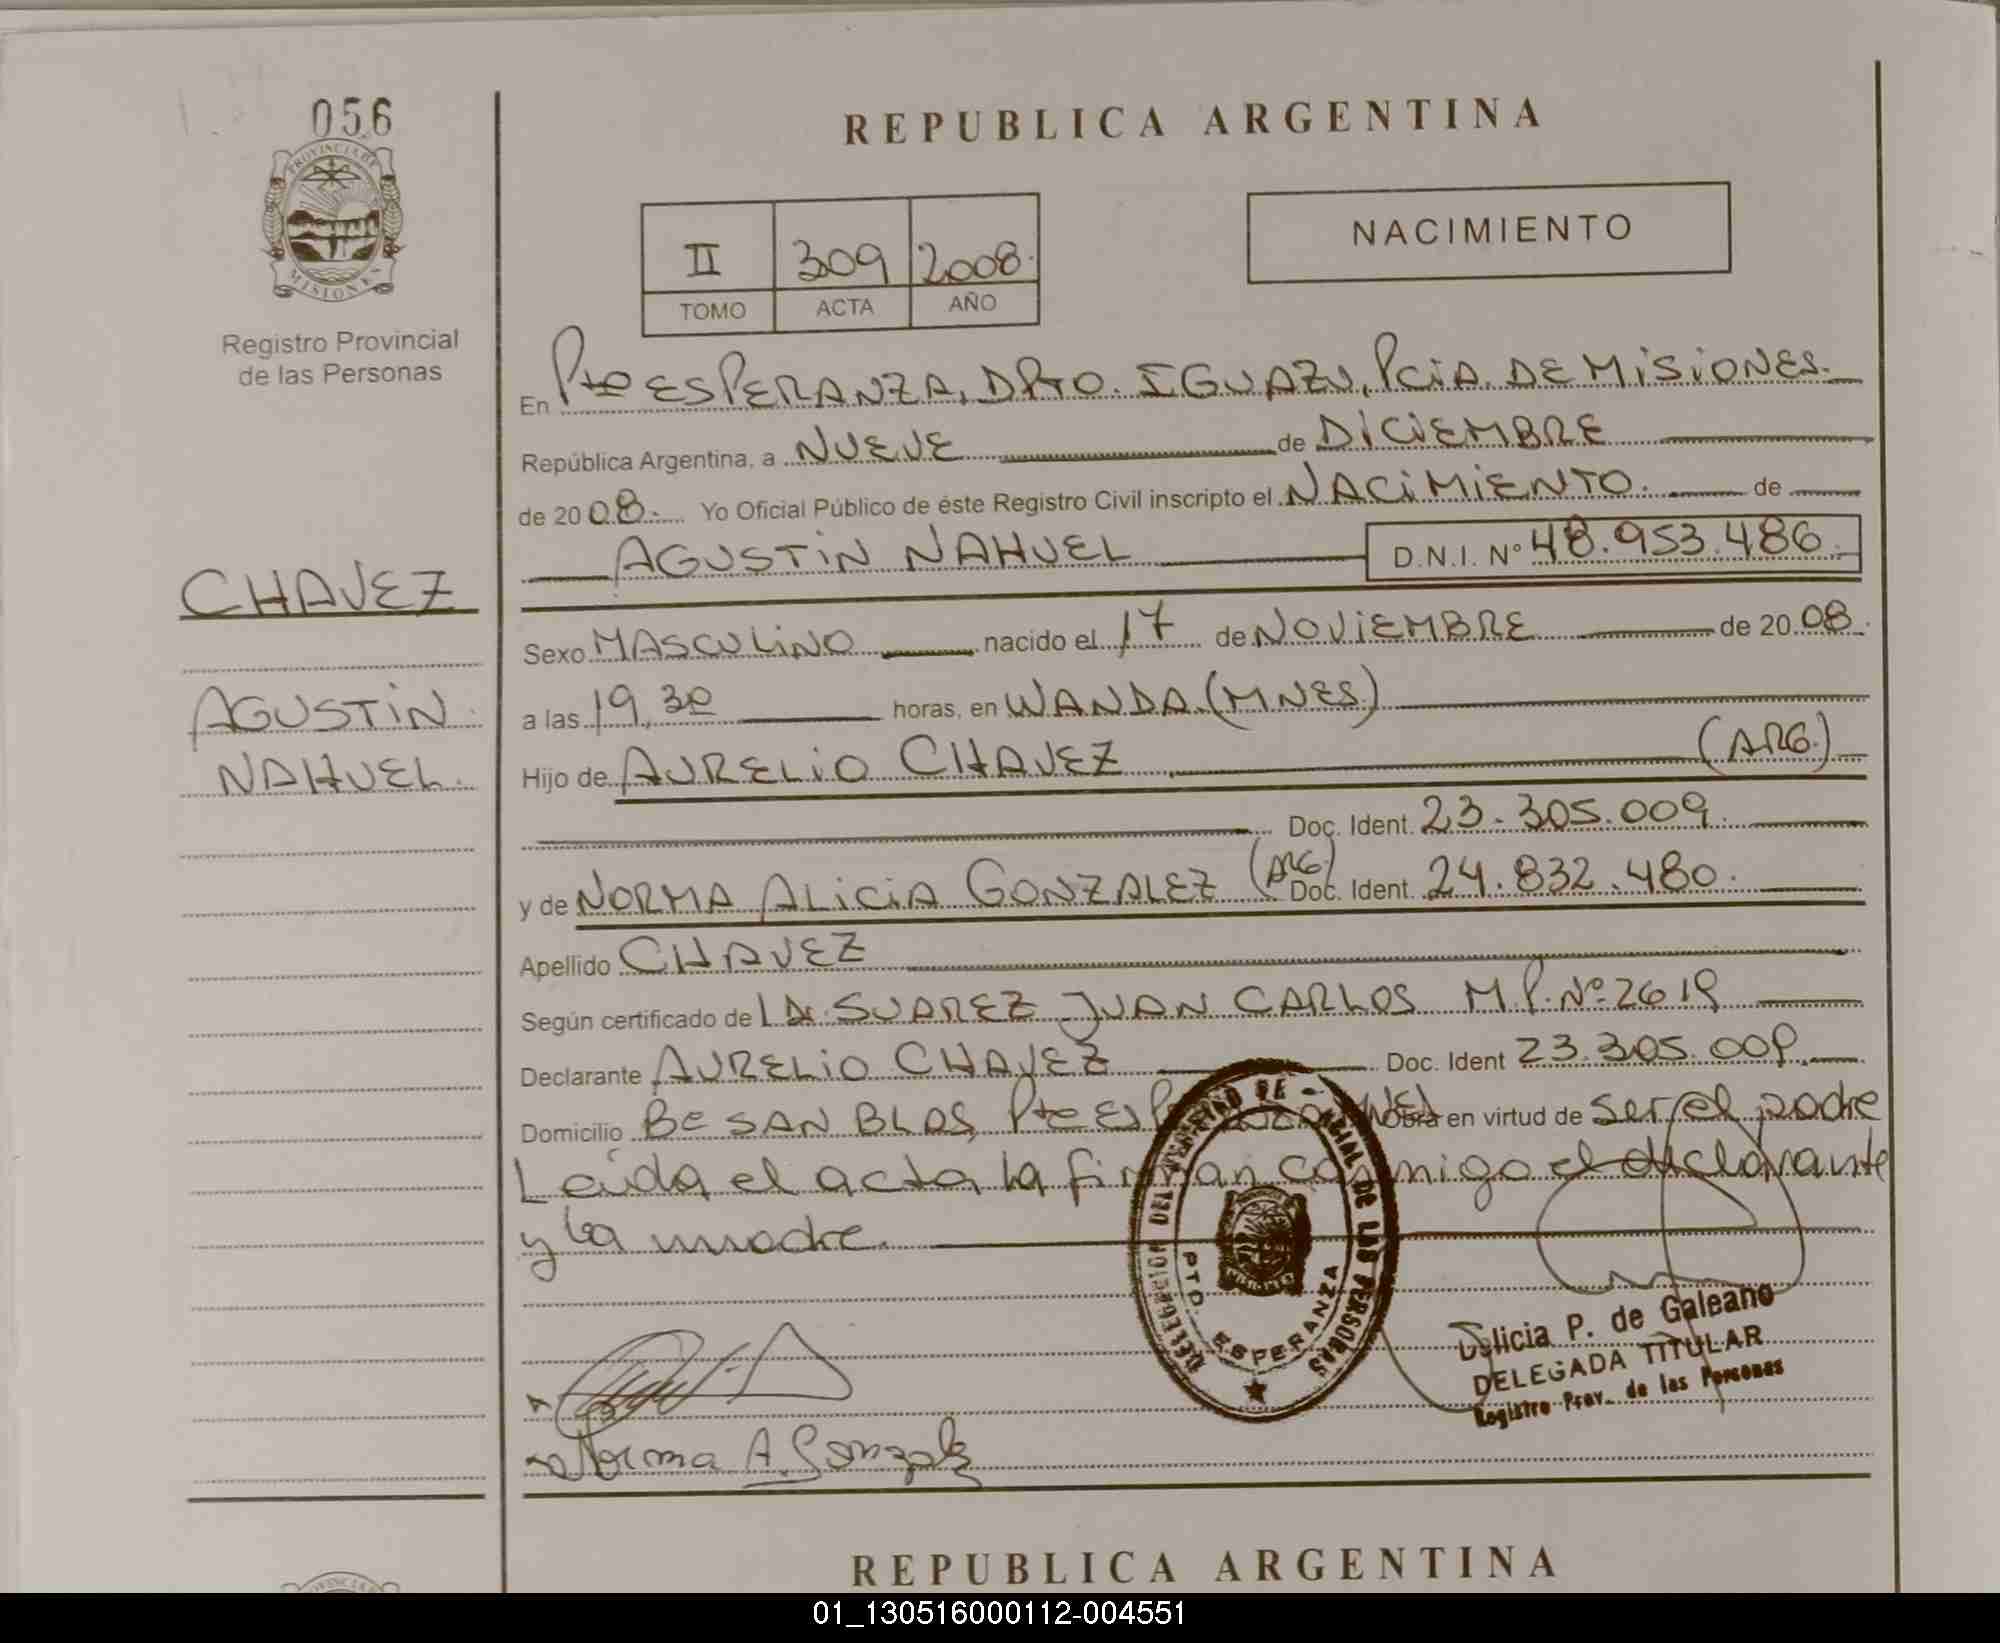 056
PROVINCIA DE
MISIONES
Registro Provincial
de las Personas
REPUBLICA ARGENTINA
II 309 2008.
TOMO ACTA AÑO
NACIMIENTO
En Pto ESPERANZA, DPTO. IGUAZU, PCIA. DE MISIONES.
República Argentina, a NUEVE de DICIEMBRE
de 2008. Yo Oficial Público de éste Registro Civil inscripto el NACIMIENTO. de
AGUSTIN NAHUEL D.N.I. Nº 48.953.486.
CHAVEZ
AGUSTIN
NAHUEL.
Sexo MASCULINO nacido el 17 de NOVIEMBRE de 2008.
a las 19,30 horas, en WANDA (MNES.)
Hijo de AURELIO CHAVEZ (ARG.)
Doc. Ident. 23.305.009.
y de NORMA ALICIA GONZALEZ (ARG.) Doc. Ident. 24.832.480.
Apellido CHAVEZ
Según certificado de SUAREZ JUAN CARLOS M.P. Nº 2619
Declarante AURELIO CHAVEZ Doc. Ident 23.305.009.
Domicilio Bº SAN BLAS, Pto Obra en virtud de ser el padre
Leída el acta la firman conmigo el declarante
y la madre.
DELEGACION DE LAS PERSONAS
PTO. ESPERANZA
P. de Galeano
DELEGADA TITULAR
Registro Prov. de las Personas
Norma A. Gonzalez
REPUBLICA ARGENTINA
01_130516000112-004551